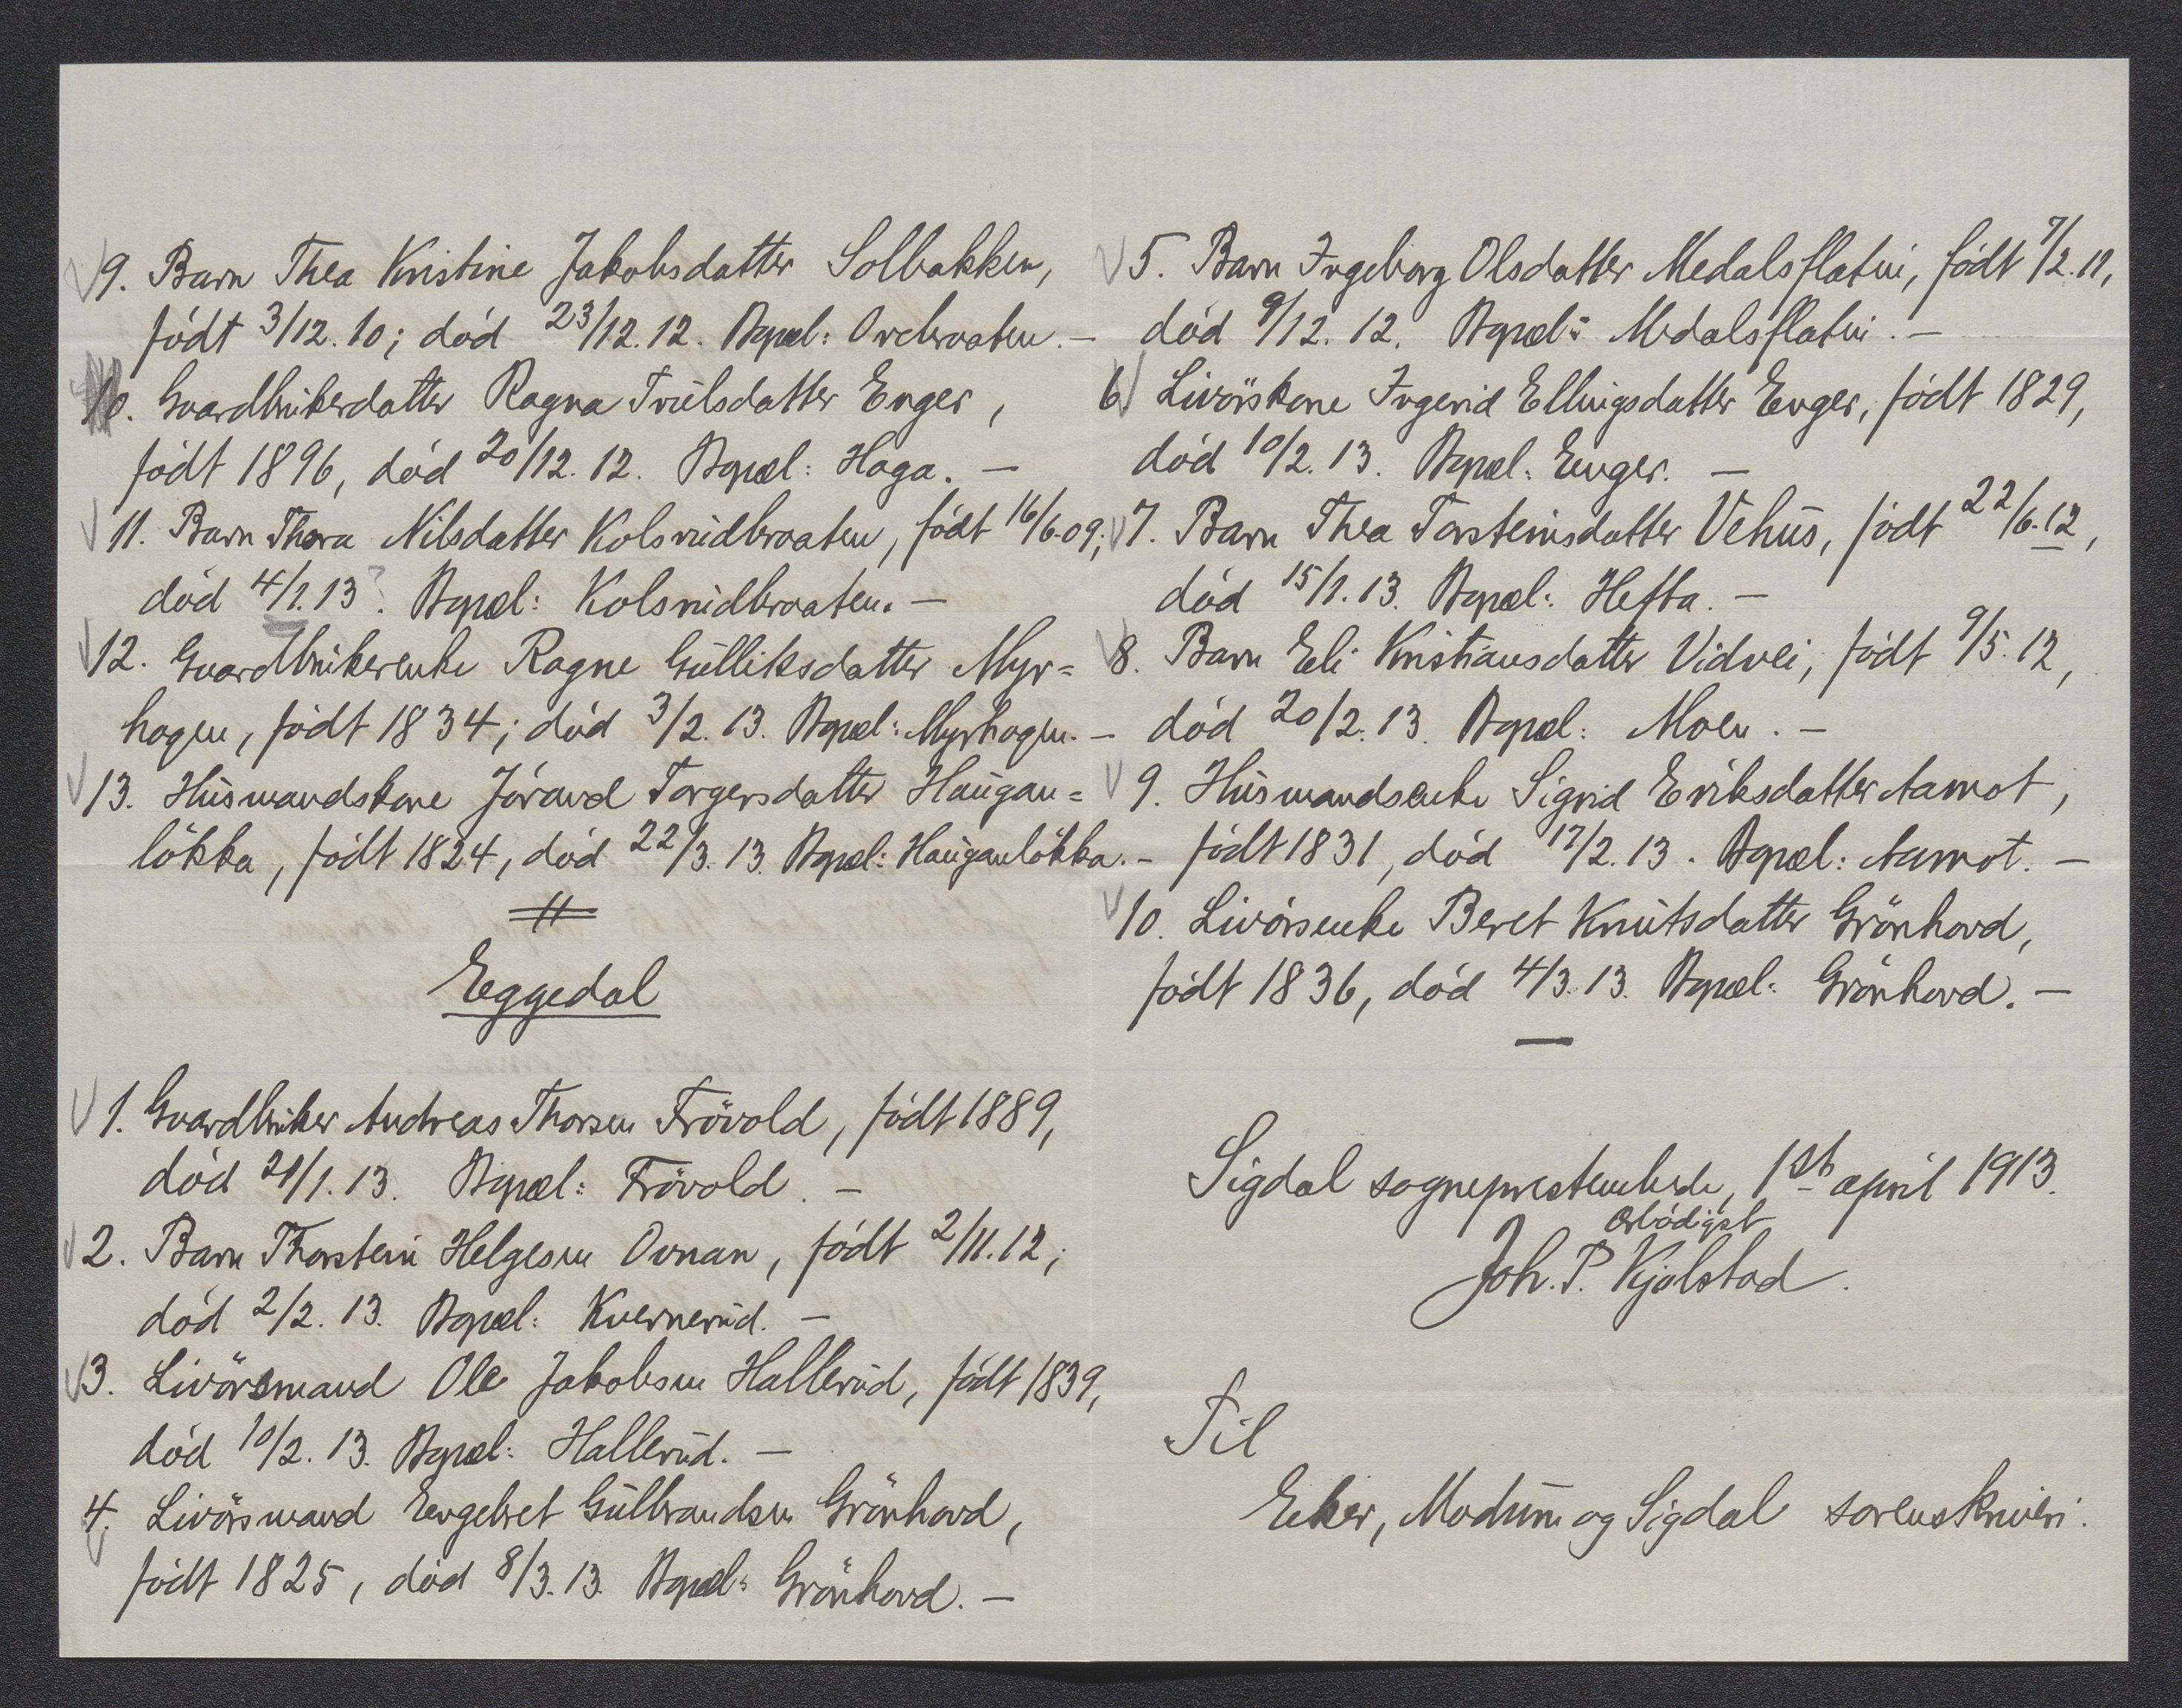 9. Barn Thea Kristine Jakobsdatter Solbakken,
født 3/12.10; død 23/12.12. Bopæl: Orebraaten. –
10. Gaardbrukerdatter Ragna Truls­datter Enger,
født 1896, død 20/12.12. Bopæl: Haga. –
11. Barn Thora Nilsdatter Kolsrudbraaten, født 16/6.09;
død 4/1.13?. Bopæl: Kolsrudbraaten. –
12. Gaardbrukerenke Ragne Gulliksdatter Myr=
hagen, født 1834; død 3/2.13. Bopæl: Myrhagen. –
13. Husmandskone Jórand Torgersdatter Haugan=
løkka, født 1824, død 22/3.13. Bopæl: Hauganløkka. –
Eggedal
1. Gaardbruker Andreas Thorsen Frøvold, født 1889,
død 21/1.13. Bopæl: Frøvold. –
2. Barn Thorstein Helgesen Ovnan, født 2/11.12;
død 2/2.13. Bopæl: Kvernerud. –
3. Livørsmand Ole Jakobsen Hallerud, født 1839,
død 10/2.13. Bopæl: Hallerud. –
4. Livørsmand Engebret Gulbrandsen Grønhovd,
født 1825, død 8/3.13. Bopæl: Grønhovd. –
5. Barn Ingeborg Olsdatter Medalsflatin, født 7/2.11,
død 9/12.12. Bopæl: Medalsflatin. –
6. Livørskone Ingerid Ellingsdatter Enger, født 1829,
død 10/2.13. Bopæl: Enger. –
7. Barn Thea Torsteinsdatter Vehus, født 22/6.12,
død 15/1.13. Bopæl: Hefta. –
8. Barn Eli Kristiansdatter Vidvei, født 9/5.12,
død 20/2.13. Bopæl: Moen. –
9. Husmandsenke Sigrid Eriksdatter Aamot,
født 1831, død 17/2.13. Bopæl: Aamot. –
10. Livørsenke Beret Knutsdatter Grønhovd,
født 1836, død 4/3.13. Bopæl: Grønhovd. –
Sigdal sogneprestembede, 1st april 1913.
ærbødigst
Joh. P. Kjølstad.
Til
Eker, Modum og Sigdal sorenskriveri.